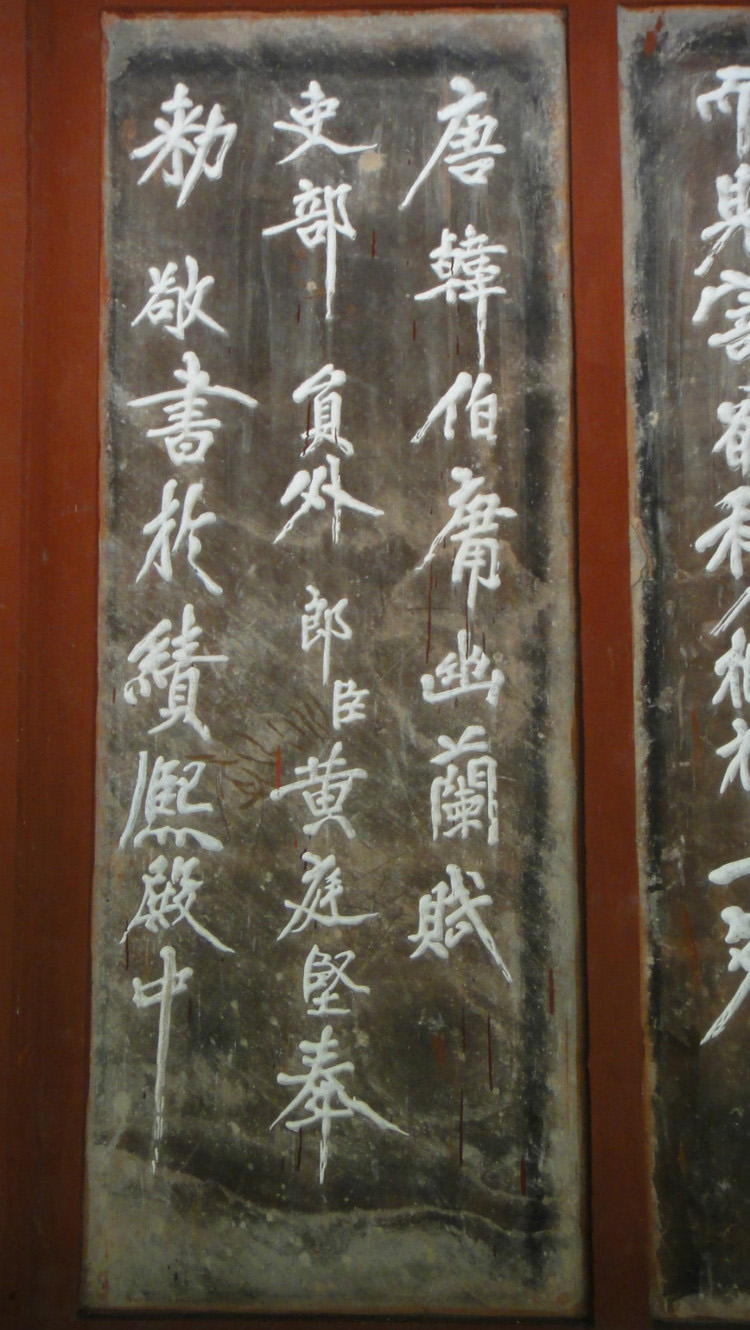 唐韓伯庸幽蘭賦
吏部員外郎臣黃庭堅奉
勅敬書於績熙殿中